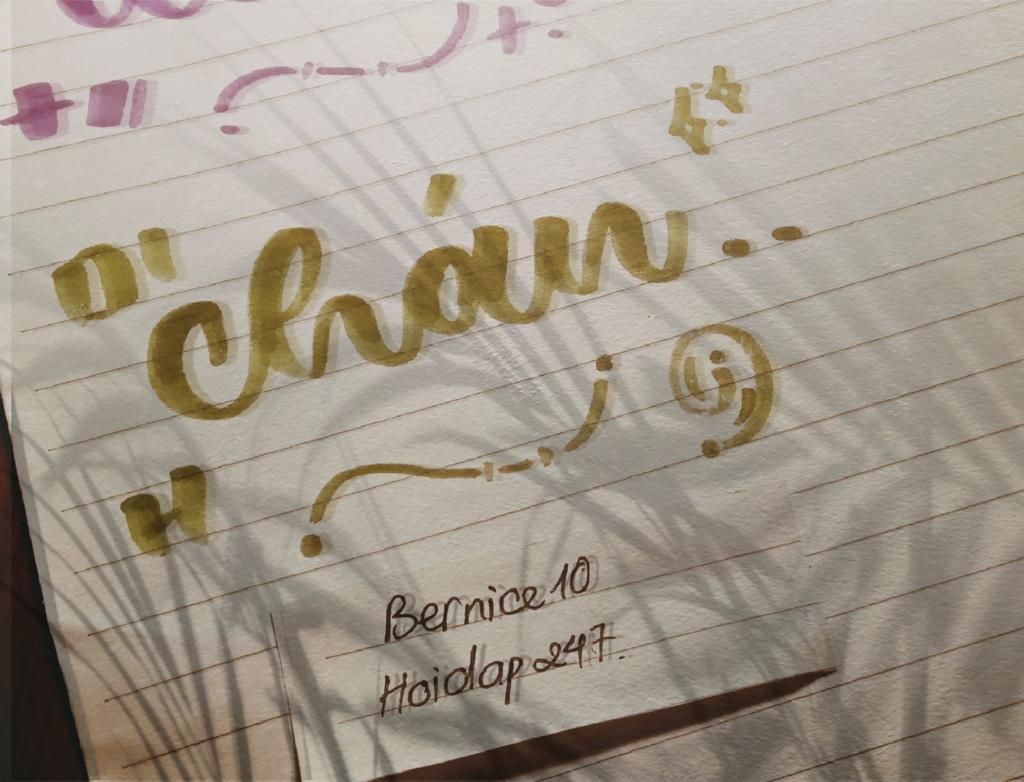 chán..
Bernice 10
Hoidap 247.